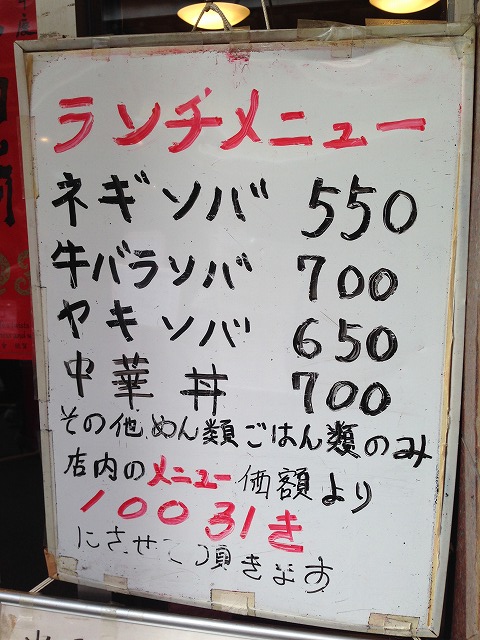 ランチメニュー
ネギソバ 550
牛バラソバ 700
ヤキソバ 650
中華丼 700
その他めん類ごはん類のみ
店内のメニュー価額より
100円引き
にさせて頂きます